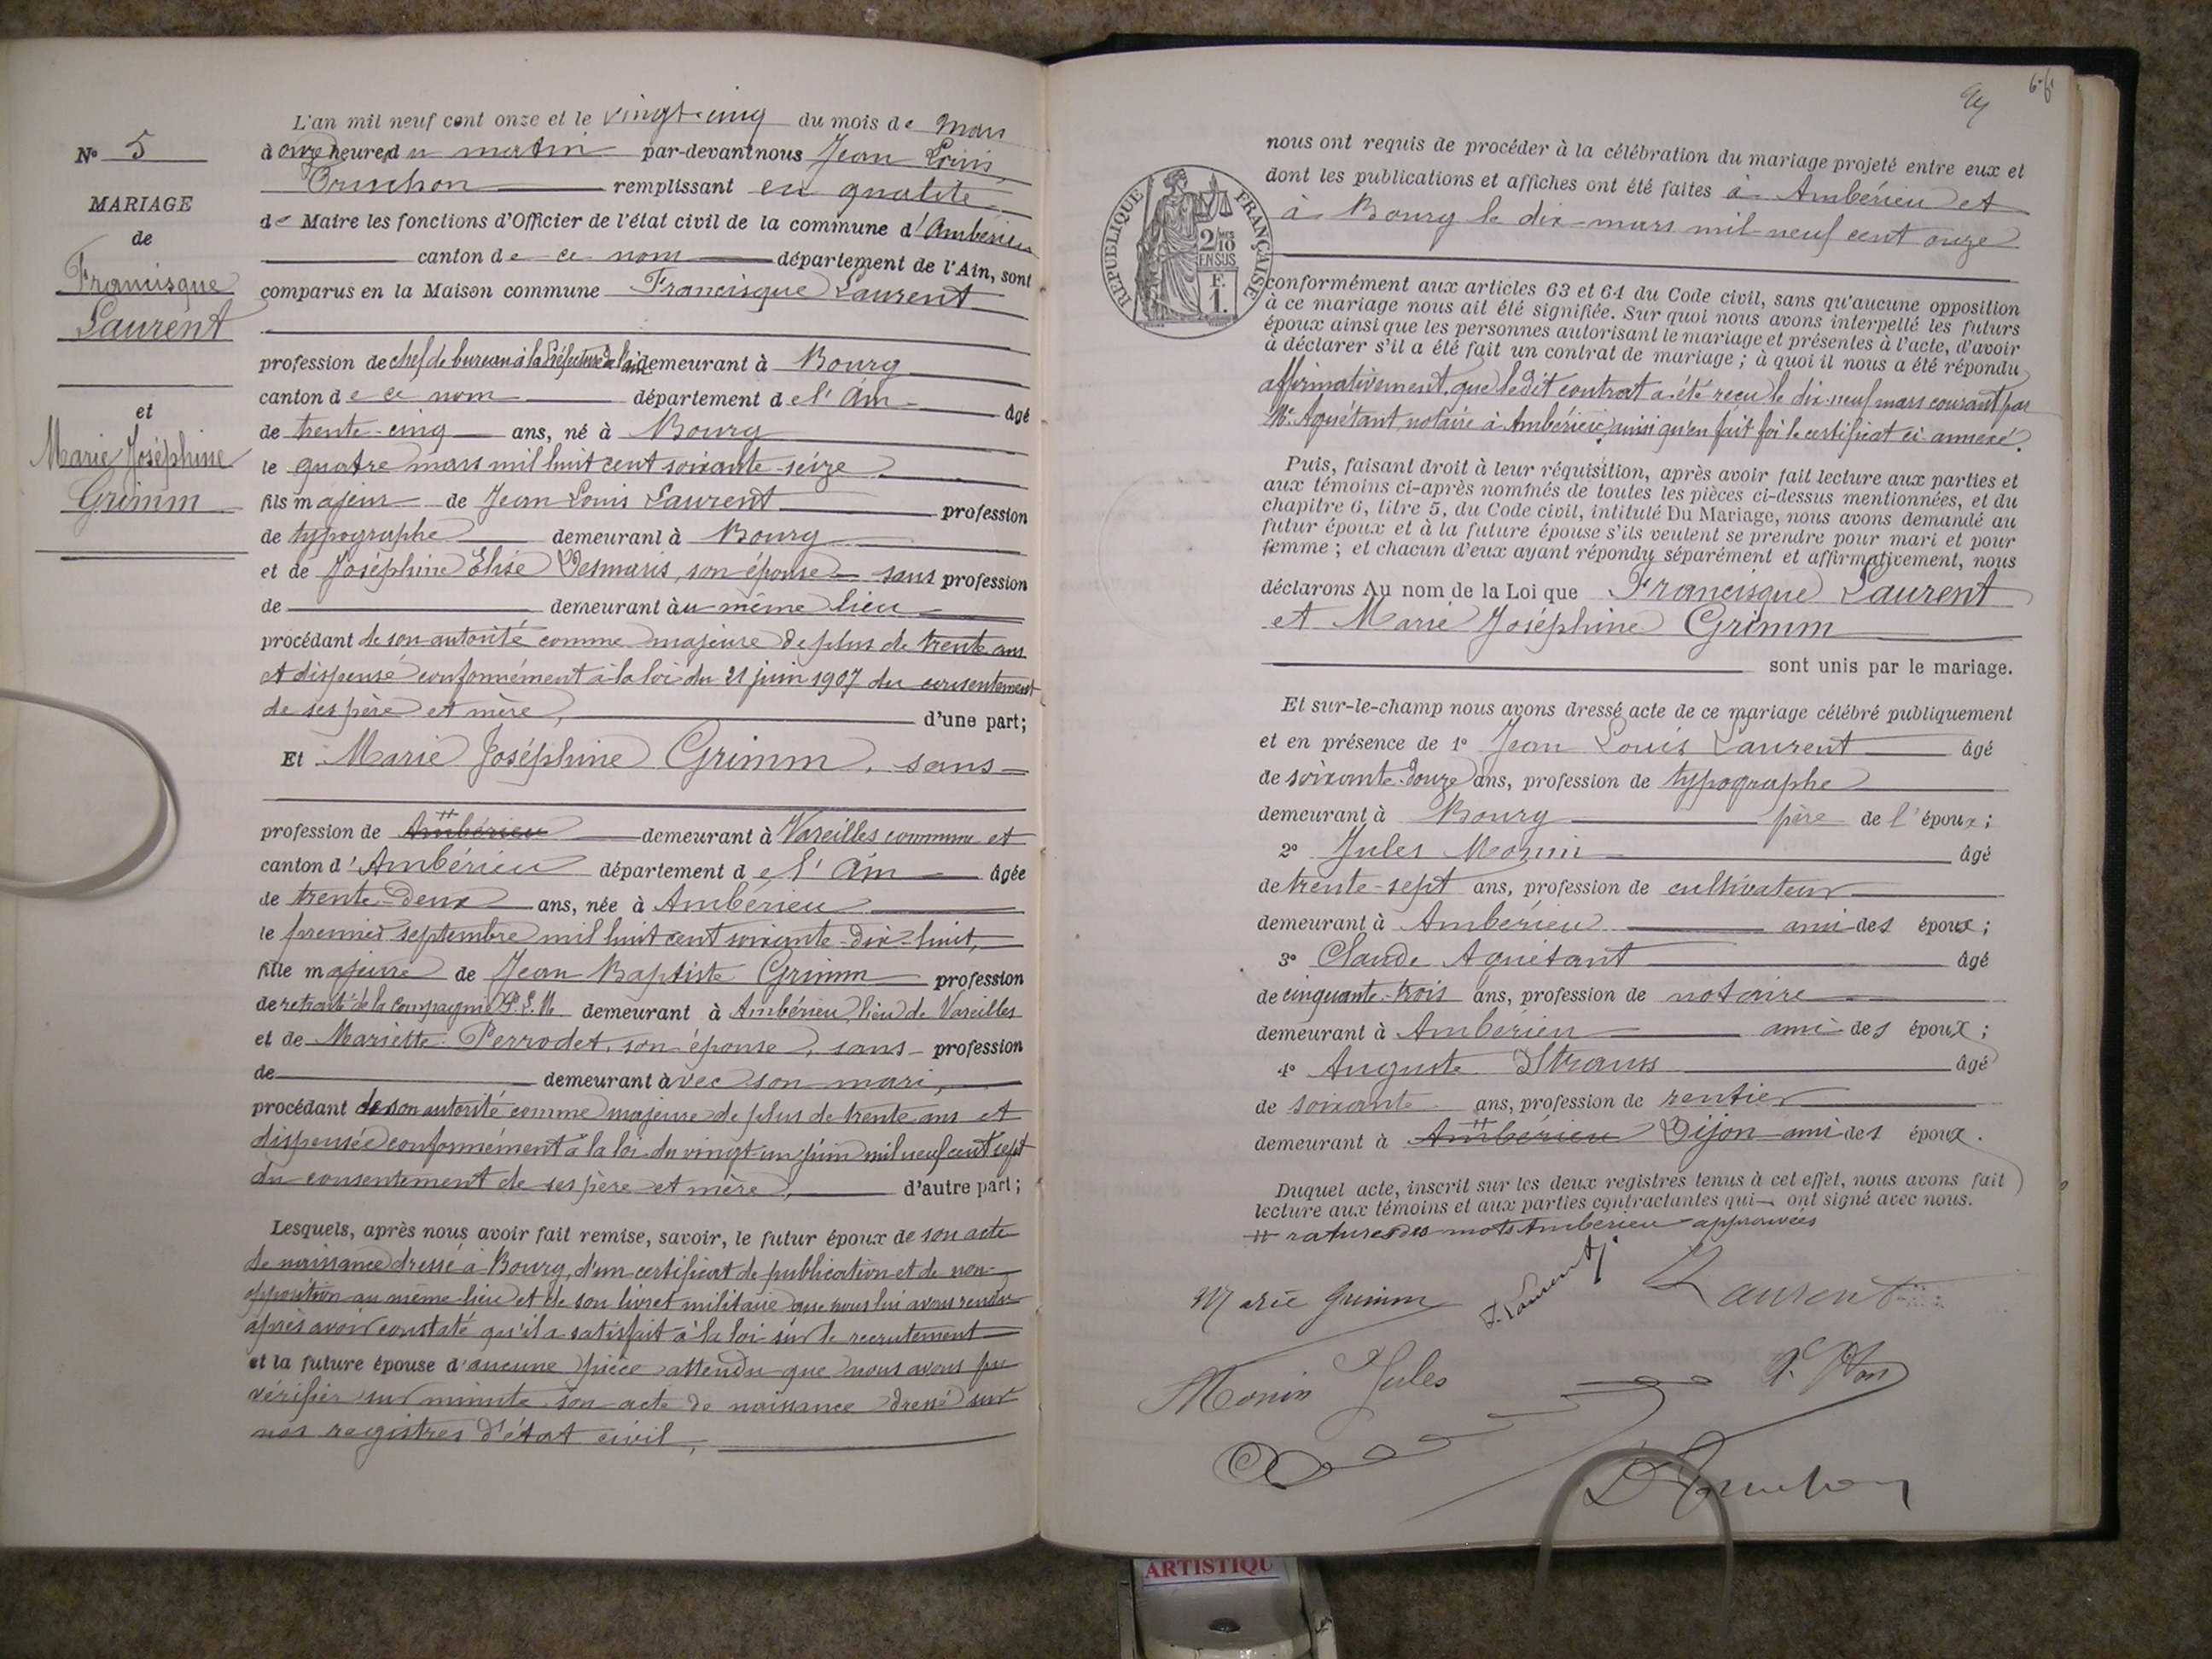 N° 5
MARIAGE
de
Francisque
Laurent
et
Marie Joséphine
Grimm
L'an mil neuf cent onze et le vingt-cinq du mois de mars
à onze heures du matin par-devant nous Jean Louis
remplissant en qualité
de Maire les fonctions d'Officier de l'état civil de la commune d'Ambérieu
canton de ce nom département de l'Ain, sont
comparus en la Maison commune Francisque Laurent
profession de chef de bureau à la Préfecture de l'Ain demeurant à Bourg
canton de ce nom département de l'Ain âgé
de trente-cinq ans, né à Bourg
le quatre mars mil huit cent soixante-seize
fils majeur de Jean Louis Laurent profession
de typographe demeurant à Bourg
et de Joséphine Elise Desmaris, son épouse sans profession
de demeurant au même lieu
procédant de son autorité comme majeure de plus de trente ans
et dispensé conformément à la loi du 21 juin 1907 du consentement
de ses père et mère, d'une part;
Et Marie Joséphine Grimm, sans
profession de Ambérieu demeurant à Vareilles commune et
canton d'Ambérieu département de l'Ain âgée
de trente-deux ans, née à Ambérieu
le premier septembre mil huit cent soixante-dix-huit,
fille majeure de Jean Baptiste Grimm profession
de retraité de la Compagnie P. L. M. demeurant à Ambérieu, lieu de Vareilles
et de Mariette Perrodet, son épouse, sans profession
de demeurant avec son mari,
procédant de son autorité comme majeure de plus de trente ans et
dispensée conformément à la loi du vingt-un juin mil neuf cent sept
du consentement de ses père et mère, d'autre part;
Lesquels, après nous avoir fait remise, savoir, le futur époux de son acte
de naissance dressé à Bourg, d'un certificat de publication et de non-
opposition au même lieu et de son livret militaire que nous lui avons rendu
après avoir constaté qu'il a satisfait à la loi sur le recrutement
et la future épouse d'aucune pièce attendu que nous avons pu
vérifier sur minute son acte de naissance dressé sur
nos registres d'état civil,
66
nous ont requis de procéder à la célébration du mariage projeté entre eux et
dont les publications et affiches ont été faites à Ambérieu et
à Bourg le dix mars mil neuf cent onze
RÉPUBLIQUE FRANÇAISE
2/10
EN SUS
F.
1.
conformément aux articles 63 et 64 du Code civil, sans qu'aucune opposition
à ce mariage nous ait été signifiée. Sur quoi nous avons interpellé les futurs
époux ainsi que les personnes autorisant le mariage et présentes à l'acte, d'avoir
à déclarer s'il a été fait un contrat de mariage ; à quoi il nous a été répondu
affirmativement, que le dit contrat a été reçu le dix-neuf mars courant par
Me Aguétant notaire à Ambérieu, ainsi qu'en fait foi le certificat ci-annexé.
Puis, faisant droit à leur réquisition, après avoir fait lecture aux parties et
aux témoins ci-après nommés de toutes les pièces ci-dessus mentionnées, et du
chapitre 6, titre 5, du Code civil, intitulé Du Mariage, nous avons demandé au
futur époux et à la future épouse s'ils veulent se prendre pour mari et pour
femme ; et chacun d'eux ayant répondu séparément et affirmativement, nous
déclarons Au nom de la Loi que Francisque Laurent
et Marie Joséphine Grimm
sont unis par le mariage.
Et sur-le-champ nous avons dressé acte de ce mariage célébré publiquement
et en présence de 1° Jean Louis Laurent âgé
de soixante-douze ans, profession de typographe
demeurant à Bourg père de l'époux ;
2° Jules Monin âgé
de trente-sept ans, profession de cultivateur
demeurant à Ambérieu ami des époux ;
3° Claude Aguétant âgé
de cinquante-trois ans, profession de notaire
demeurant à Ambérieu ami des époux ;
4° Auguste Strauss âgé
de soixante ans, profession de rentier
demeurant à Ambérieu Dijon ami des époux.
Duquel acte, inscrit sur les deux registres tenus à cet effet, nous avons fait
lecture aux témoins et aux parties contractantes qui ont signé avec nous.
# ratures des mots Ambérieu approuvées
Marie Grimm F. Laurent Laurent
Monin Jules
ARTISTIQU